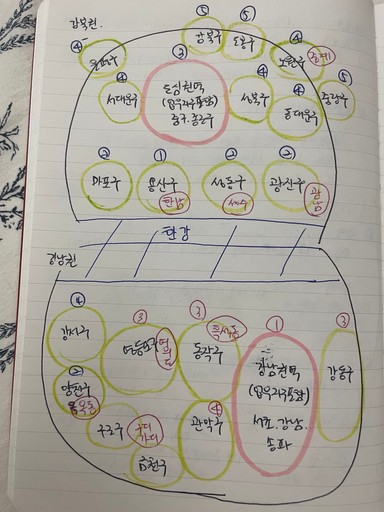 강북권.
⑤
⑤
강북구
도봉구
④
은평구
③
④
노원구
중계
④
서대문구
도심권역
중구.종로구
④
성북구
④
동대문구
⑤
중랑구
②
마포구
①
용산구
한남
②
성동구
성수
②
광진구
광남
한강
강남권
④
강서구
③
영등포구
여의도
③
흑석동
동작구
①
강남권역
서초.강남.
송파
③
강동구
②
양천구
목동
구로구
구디
가디
④
관악구
금천구